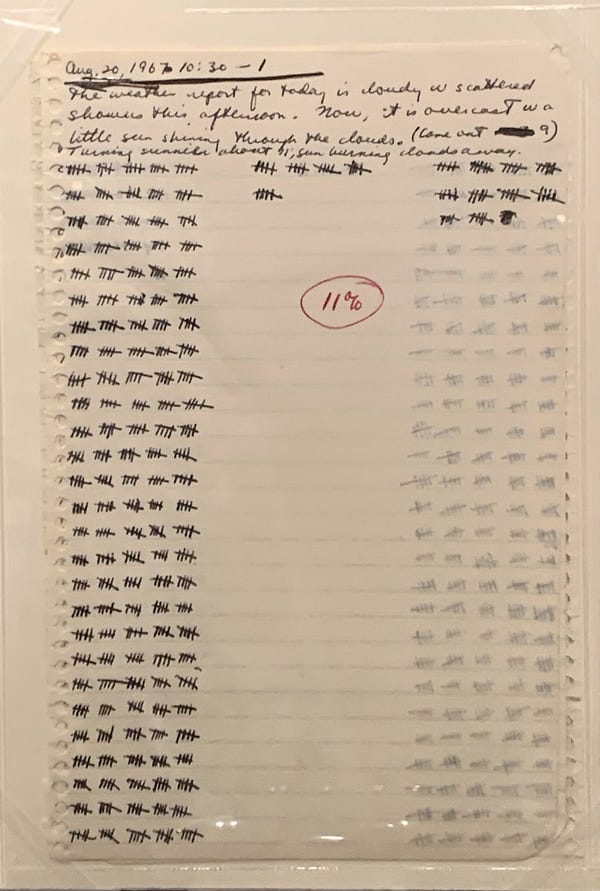 Aug. 20, 1967 10:30 – 1
The weather report for today is cloudy w scattered
showers this afternoon. Now, it is overcast w a
little sun shining through the clouds. (Came out 9)
Turning sunnier about 11, sun burning clouds away.
11%